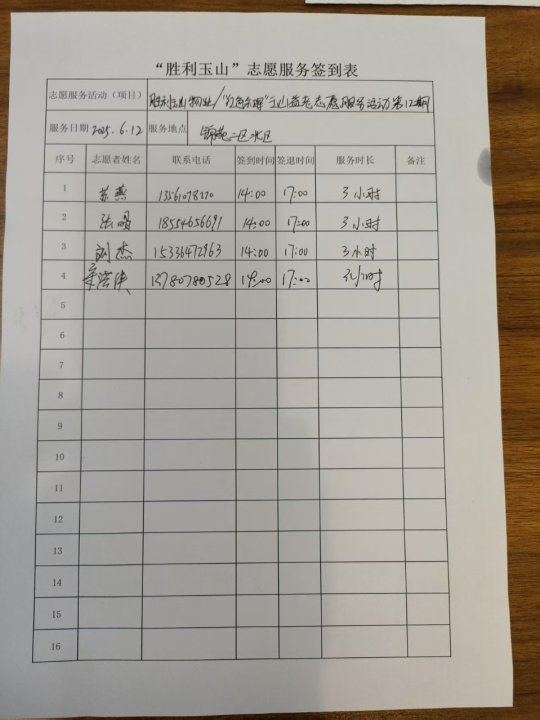 “胜利玉山”志愿服务签到表
志愿服务活动（项目） 胜利玉山物业/“红色东营”玉山益老志愿服务活动第12期
服务日期 2025.6.12 服务地点 锦苑二区北区
序号 志愿者姓名 联系电话 签到时间 签退时间 服务时长 备注
1 苏燕 14:00 17:00 3小时
2 张 18554656691 14:00 17:00 3小时
3 刘杰 15336472963 14:00 17:00 3小时
4 13780780528 14:00 17:00 3小时
5
6
7
8
9
10
11
12
13
14
15
16